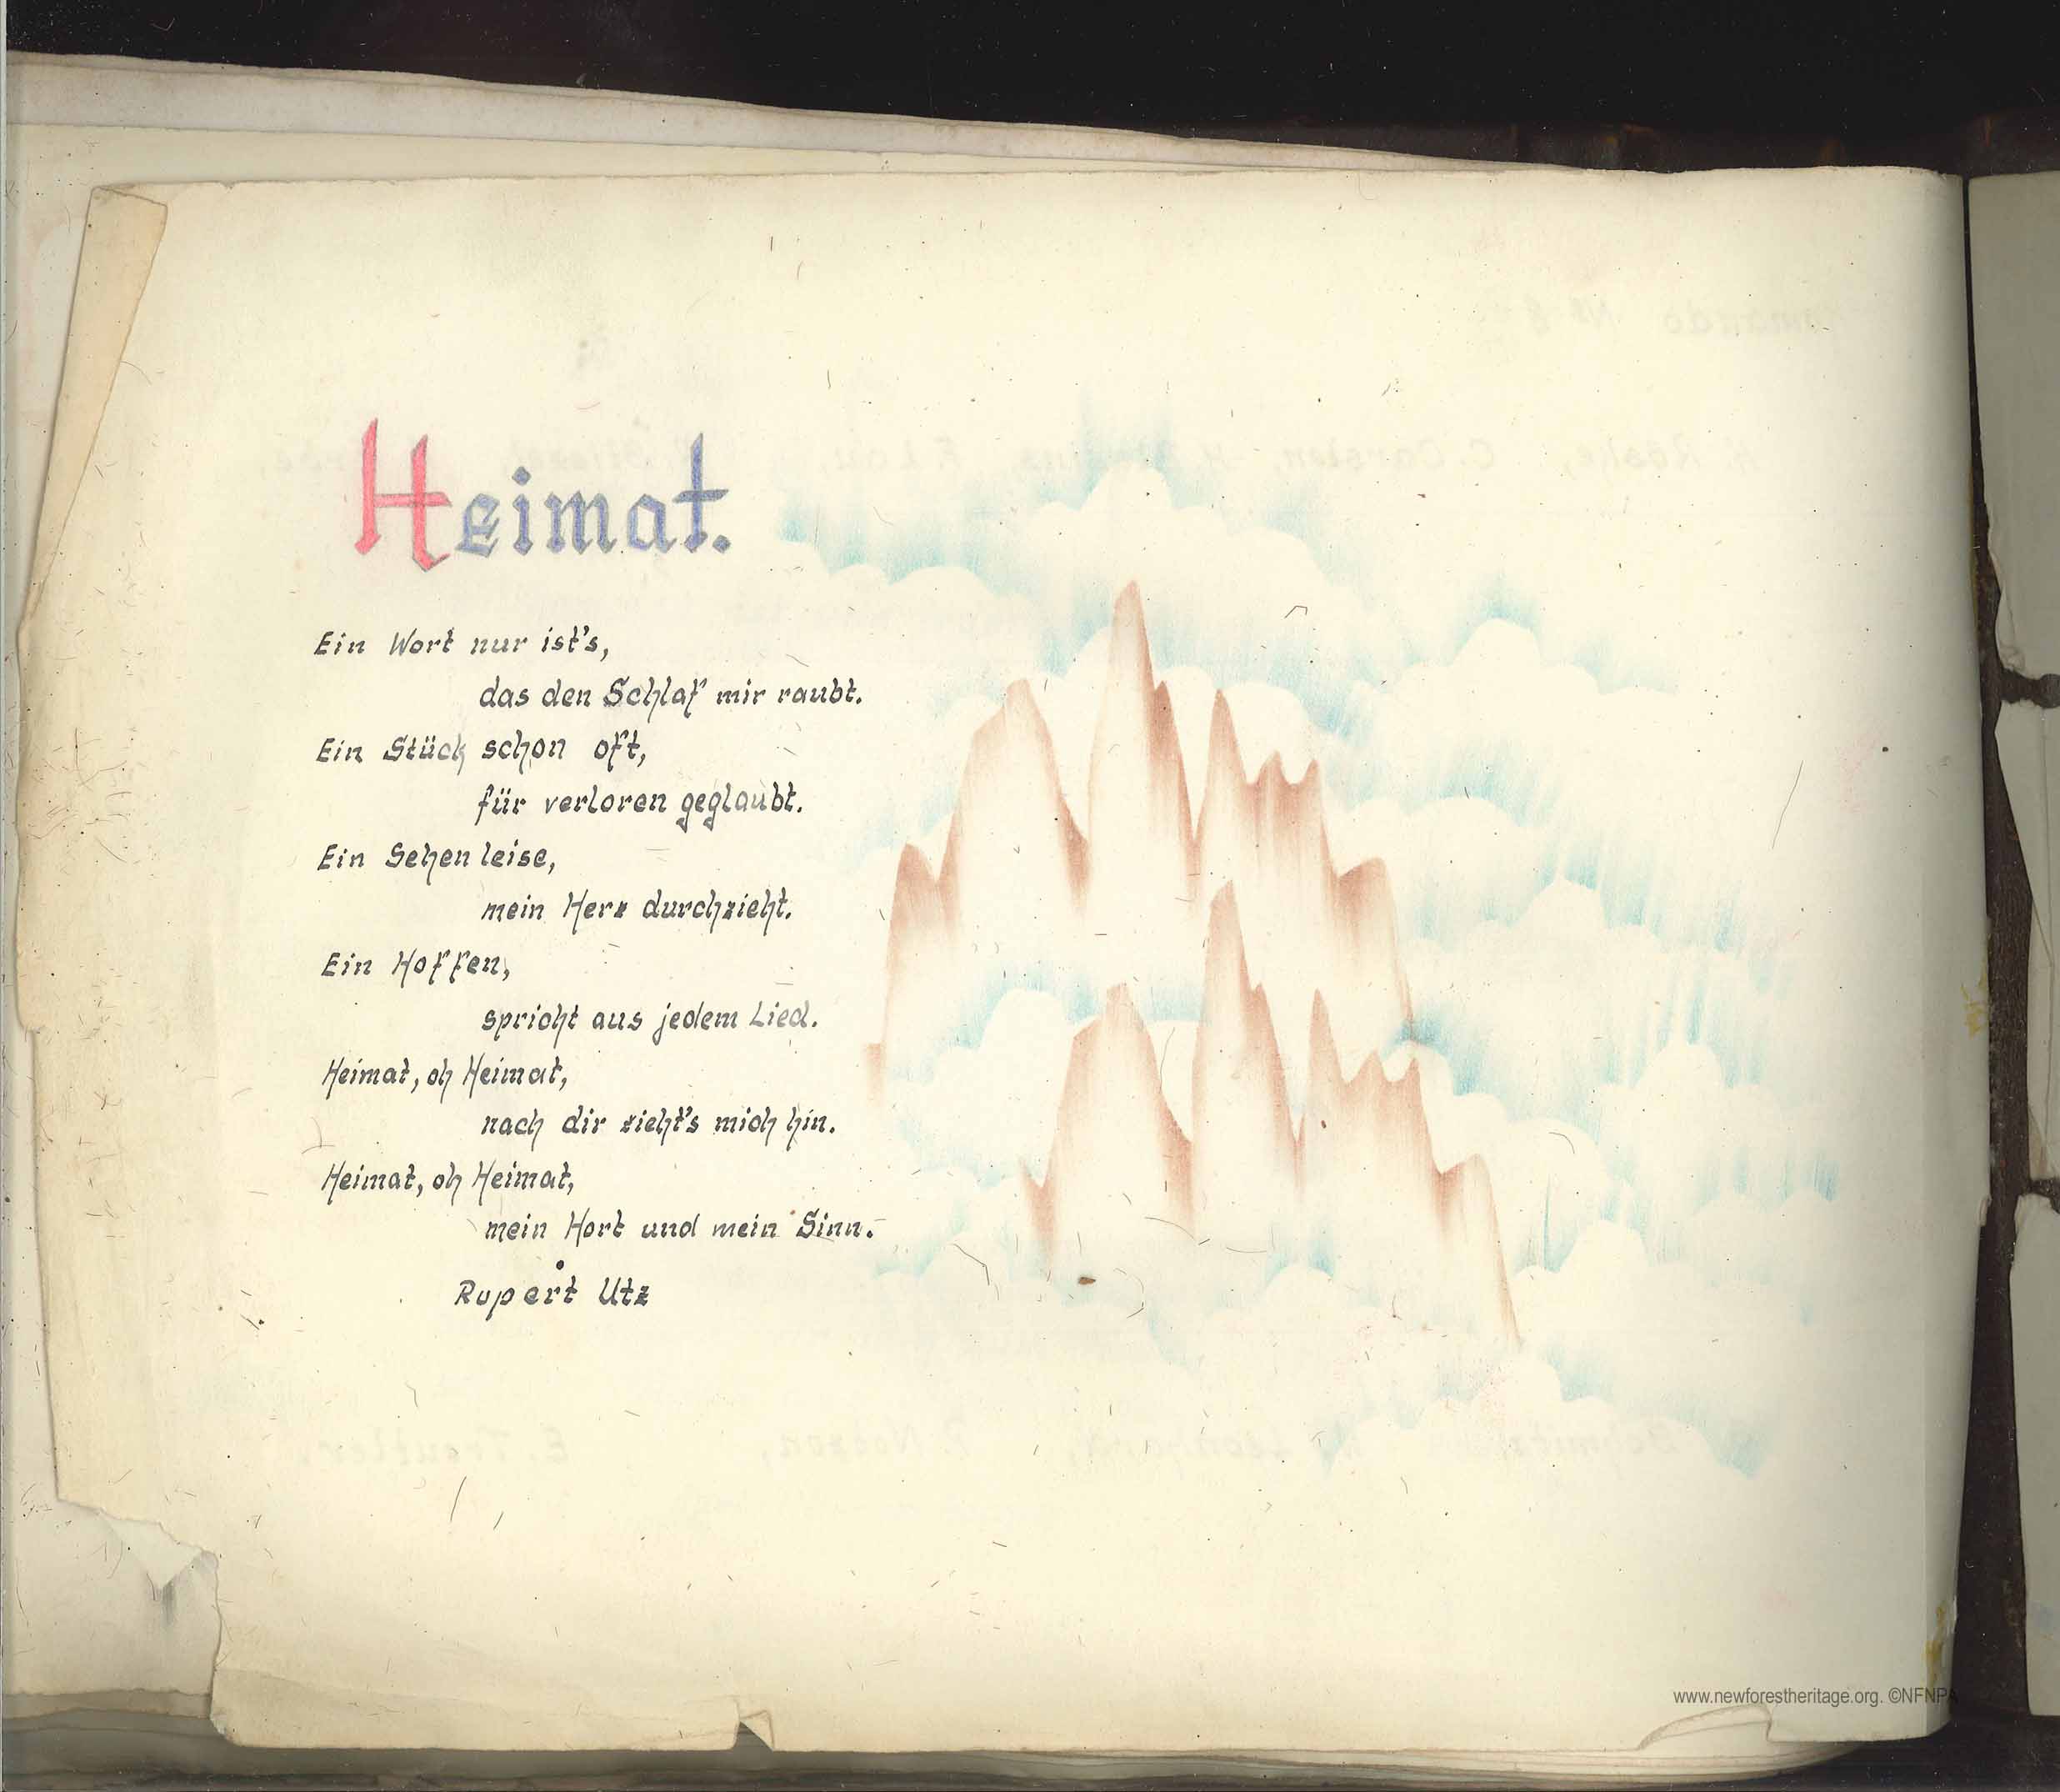 Heimat.
Ein Wort nur ist's,
das den Schlaf mir raubt.
Ein Stück schon oft,
für verloren geglaubt.
Ein Sehen leise,
mein Herz durchzieht.
Ein Hoffen,
spricht aus jedem Lied.
Heimat, oh Heimat,
nach dir zieht's mich hin.
Heimat, oh Heimat,
mein Hort und mein Sinn.
Rupert Utz
www.newforestheritage.org. ©NFNPA